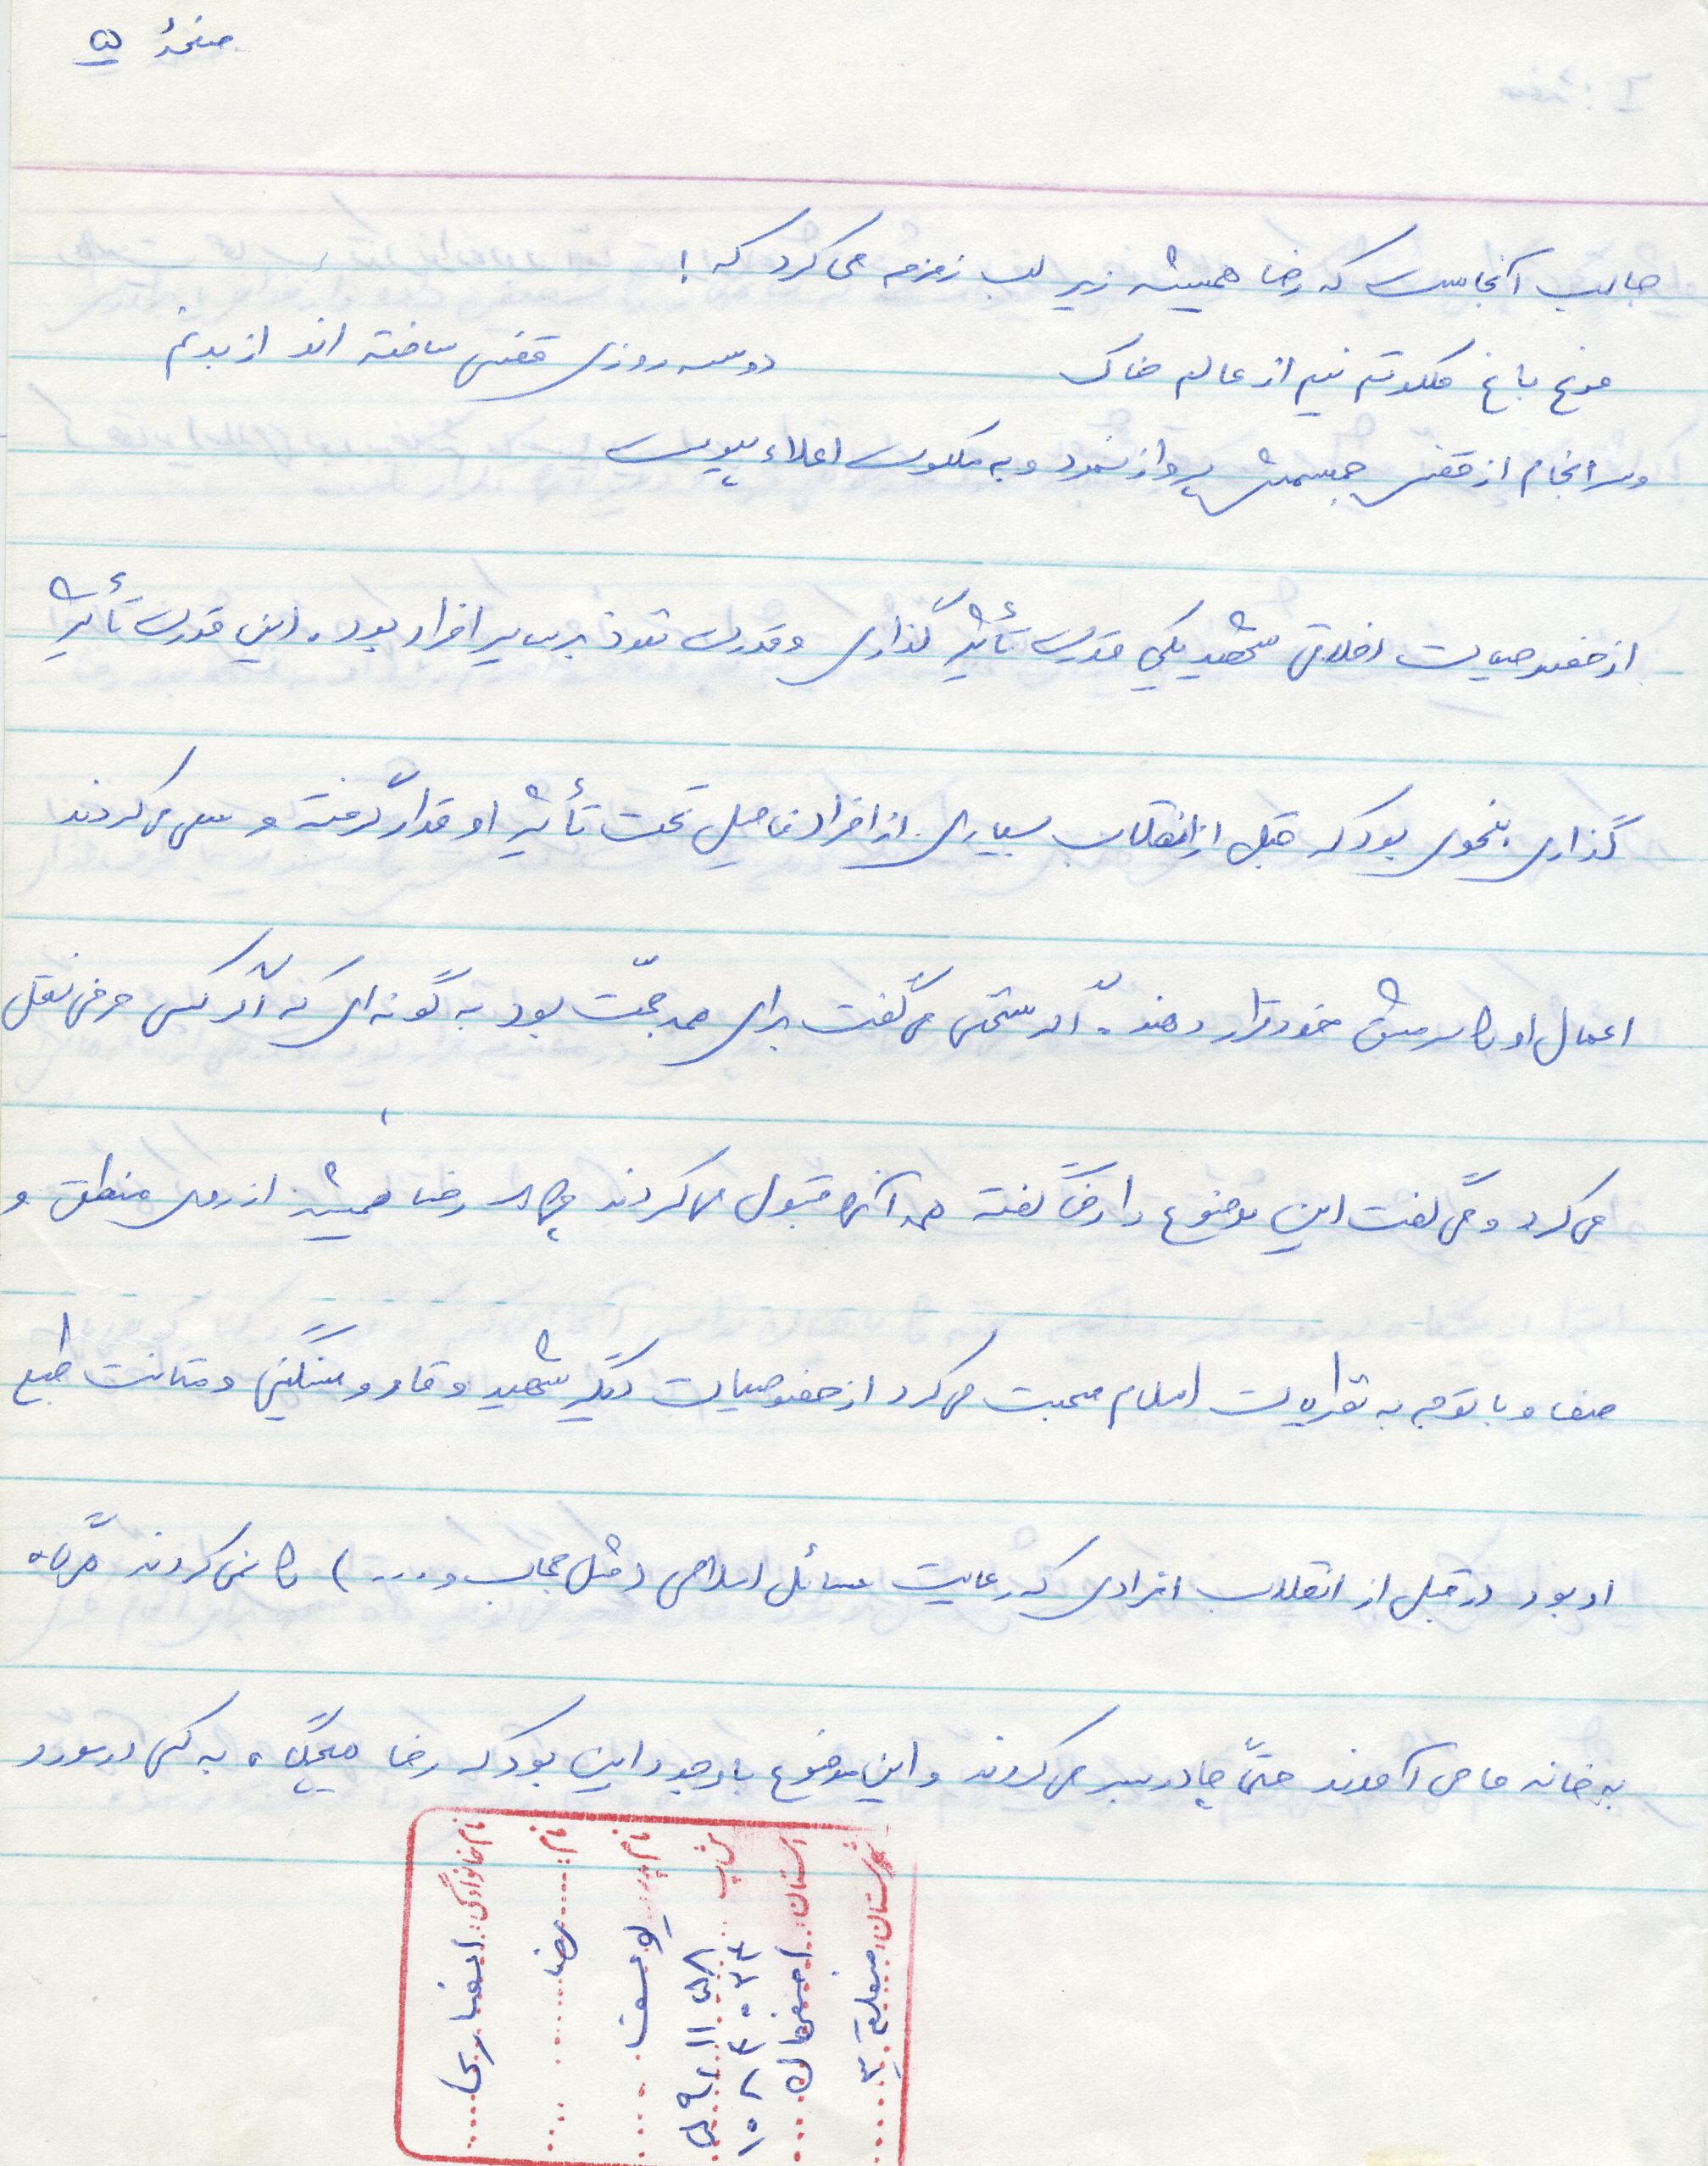 صفحهٔ ۵
جالب آنجاست که رضا همیشه زیر لب زمزمه می کرد که !
مرغ باغ ملکوتم نیم از عالم خاک دو سه روزی قفسی ساخته اند از بدنم
و سرانجام از قفس جسمش پرواز نمود و به ملکوت اعلاء پیوست
از خصوصیات اخلاقی شهید یکی قدرت تأثیر گذاری و قدرت نفوذ بر سایر افراد بود . این قدرت تأثیر
گذاری بنحوی بود که قبل از انقلاب بسیاری از افراد فامیل تحت تأثیر او قرار گرفته و سعی می کردند
اعمال او را سرمشق خود قرار دهند . اگر سخنی می گفت برای همه حجّت بود به گونه ای که اگر کسی حرفی نقل
می کرد و می گفت این موضوع را رضا گفته همه آنرا قبول می کردند چرا که رضا همیشه از روی منطق و
صفا و با توجه به نظریات اسلام صحبت می کرد از خصوصیات دیگر شهید وقار و سنگینی و متانت طبع
او بود در قبل از انقلاب افرادی که رعایت مسائل اسلامی (مثل حجاب و ...) را نمی کردند هرگاه
به خانه ما می آمدند حتّی چادر بسر می کردند و این موضوع با وجود این بود که رضا هیچگاه به کسی در مورد
شهرستان: منطقه ۳
استان: اصفهان
نام پدر: یوسف
نام: رضا
نام خانوادگی: انصاری